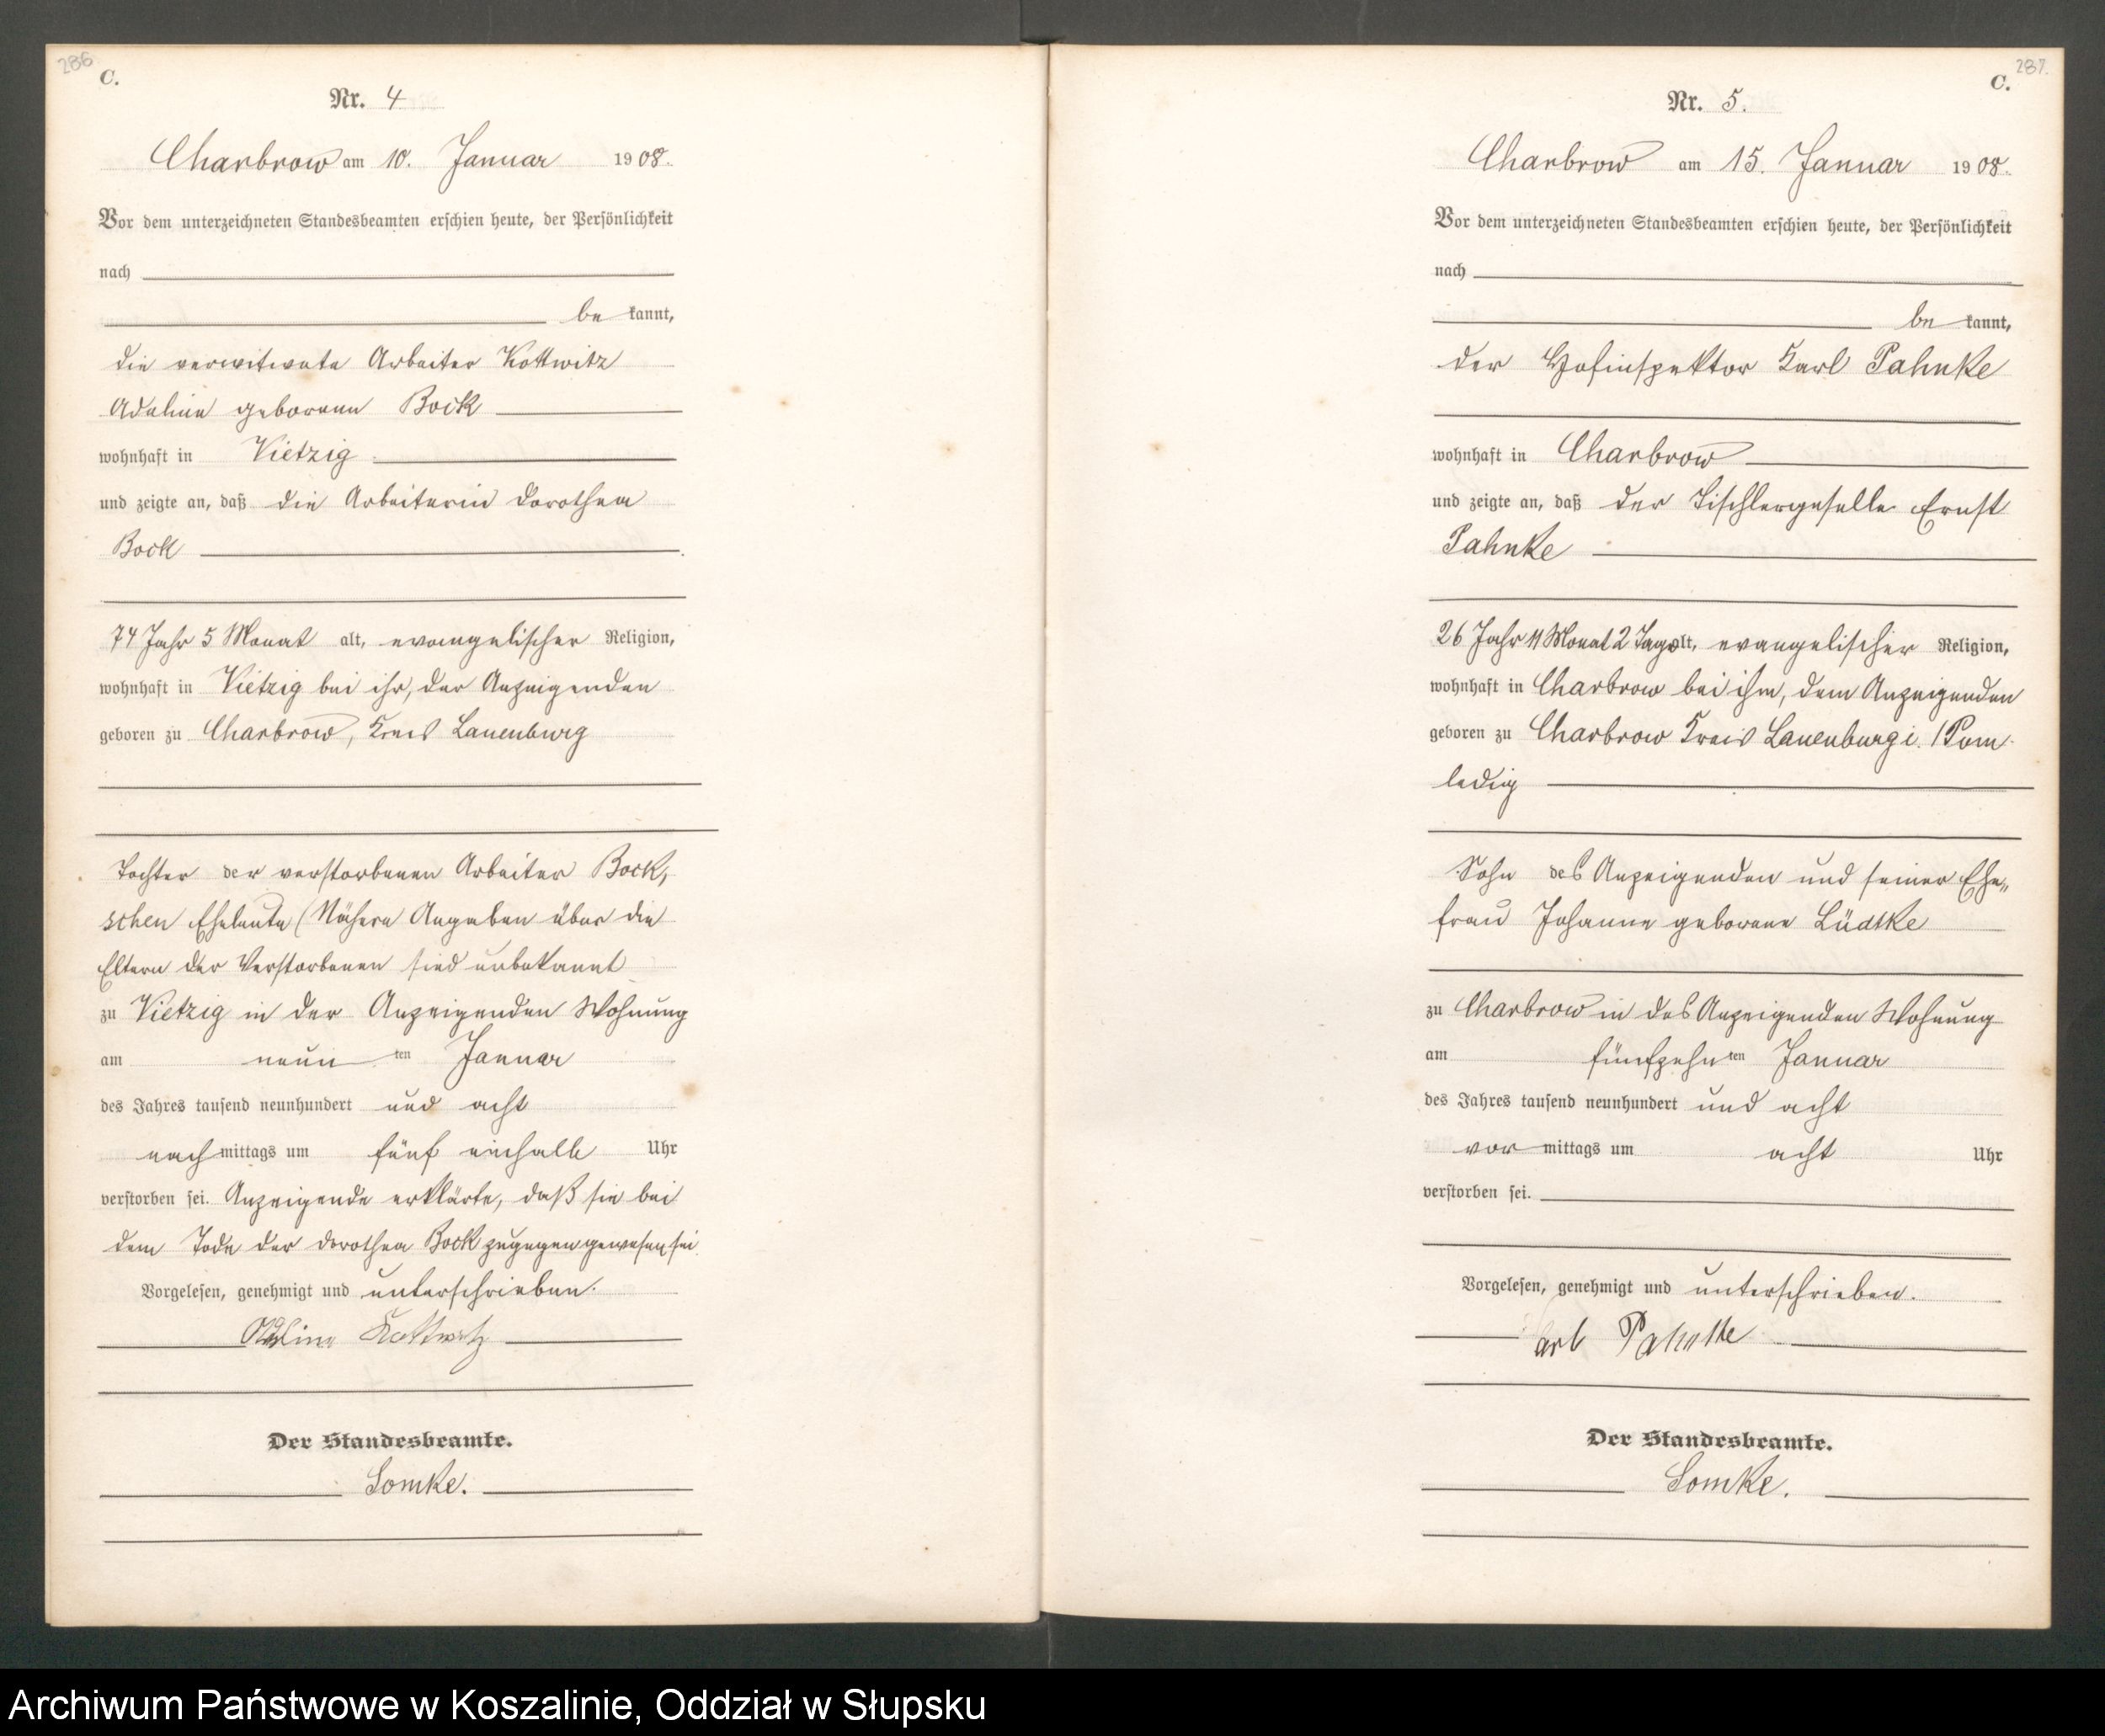 286
C.
Nr. 4
Charbrow am 10. Januar 1908.
Vor dem unterzeichneten Standesbeamten erschien heute, der Persönlichkeit
nach
be kannt,
die verwitwete Arbeiter Kottwitz
Adeline geborene Bock
wohnhaft in Vietzig
und zeigte an, daß die Arbeiterin Dorothea
Bock
74 Jahr 5 Monat alt, evangelischer Religion,
wohnhaft in Vietzig bei ihr, der Anzeigenden
geboren zu Charbrow, Kreis Lauenburg
Tochter der verstorbenen Arbeiter Bock,
schen Eheleute (Nähere Angaben über die
Eltern der Verstorbenen sind unbekannt
zu Vietzig in der Anzeigenden Wohnung
am neun ten Januar
des Jahres tausend neunhundert und acht
nach mittags um fünf einhalb Uhr
verstorben sei. Anzeigende erklärte, daß sie bei
dem Tode der Dorothea Bock zugegen gewesen sei.
Vorgelesen, genehmigt und unterschrieben.
Adeline Kottwitz
Der Standesbeamte.
Lomke.
287.
C.
Nr. 5.
Charbrow am 15. Januar 1908.
Vor dem unterzeichneten Standesbeamten erschien heute, der Persönlichkeit
nach
be kannt,
der Hofinspektor Karl Pahnke
wohnhaft in Charbrow
und zeigte an, daß der Tischlergeselle Ernst
Pahnke
26 Jahr 11 Monat 2 Tage alt, evangelischer Religion,
wohnhaft in Charbrow bei ihm, dem Anzeigenden
geboren zu Charbrow Kreis Lauenburg i./Pom.
ledig
Sohn des Anzeigenden und seiner Ehe„
frau Johanne geborene Lüdtke
zu Charbrow in des Anzeigenden Wohnung
am fünfzehn ten Januar
des Jahres tausend neunhundert und acht
vor mittags um acht Uhr
verstorben sei.
Vorgelesen, genehmigt und unterschrieben.
Carl Pahnke
Der Standesbeamte.
Lomke.
Archiwum Państwowe w Koszalinie, Oddział w Słupsku